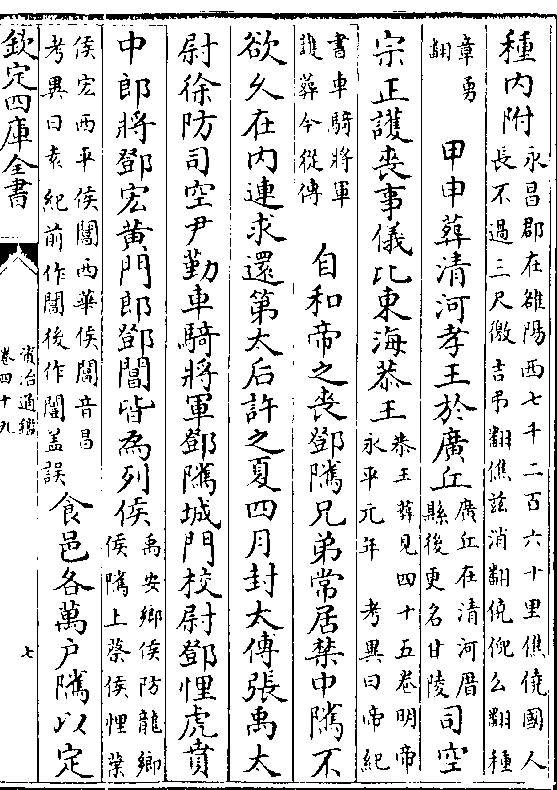 種内附永昌郡在雒陽西七千二百六十里僬僥國人
長不過三尺儌吉弔翻僬兹消翻僥倪么翻種
章勇
翻
甲申葬清河孝王於廣丘廣丘在清河厝
縣後更名甘陵司空
宗正護喪事儀比東海恭王恭王葬見四十五卷明帝
永平元年 考異曰帝紀
書車騎將軍
護葬今從傳
自和帝之喪鄧隲兄弟常居禁中隲不
欲久在内連求還第太后許之夏四月封太傅張禹太
尉徐防司空尹勤車騎將軍鄧隲城門校尉鄧悝虎賁
中郎將鄧宏黄門郎鄧閶皆為列侯禹安鄉侯防龍鄉
侯隲上蔡侯悝葉
侯宏西平侯閶西華侯閶音昌
考異曰袁紀前作閶後作閭蓋誤食邑各萬户隲以定
欽定四庫全書
資治通鑑
卷四十九
七